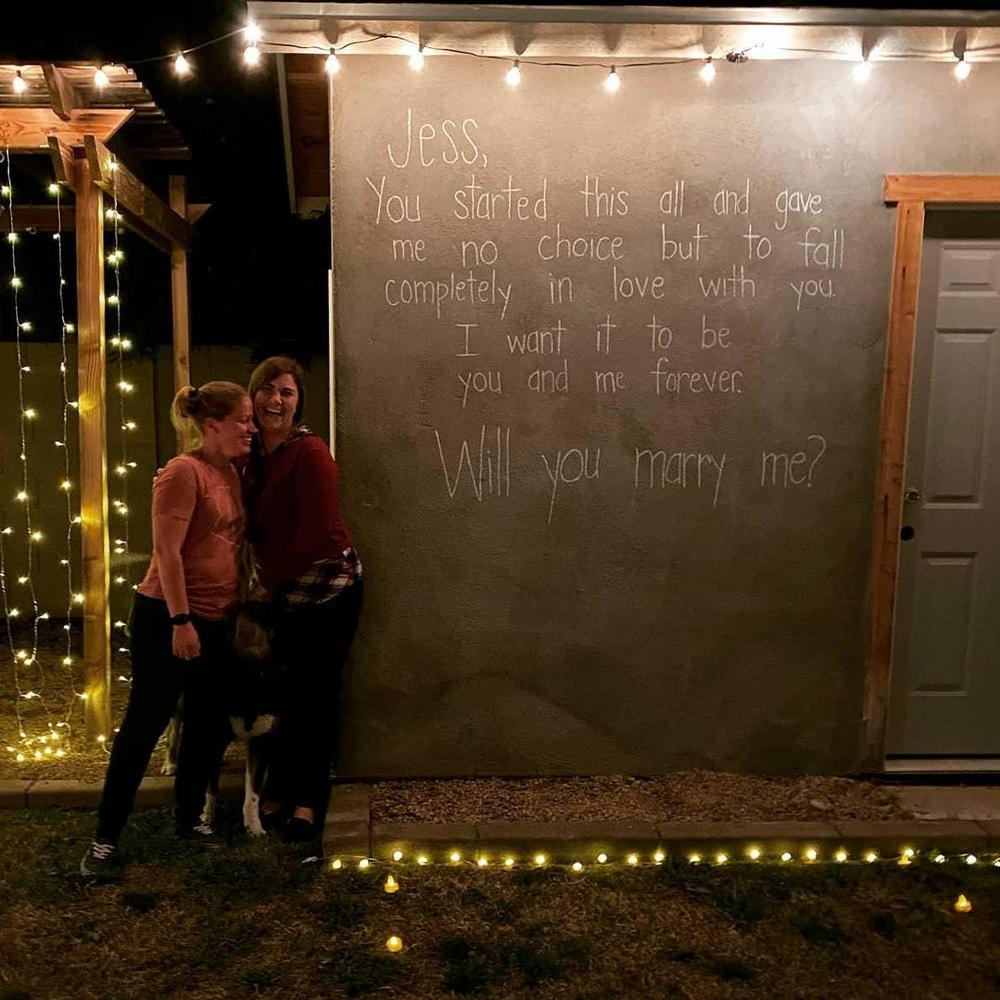 Jess,
You started this all and gave
me no choice but to fall
completely in love with you.
I want it to be
you and me forever.
Will you marry me?